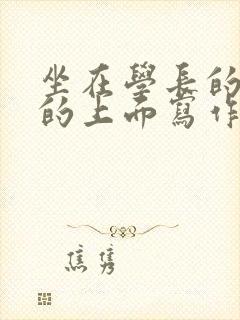 坐在學長的
的上而寫作
焦雋